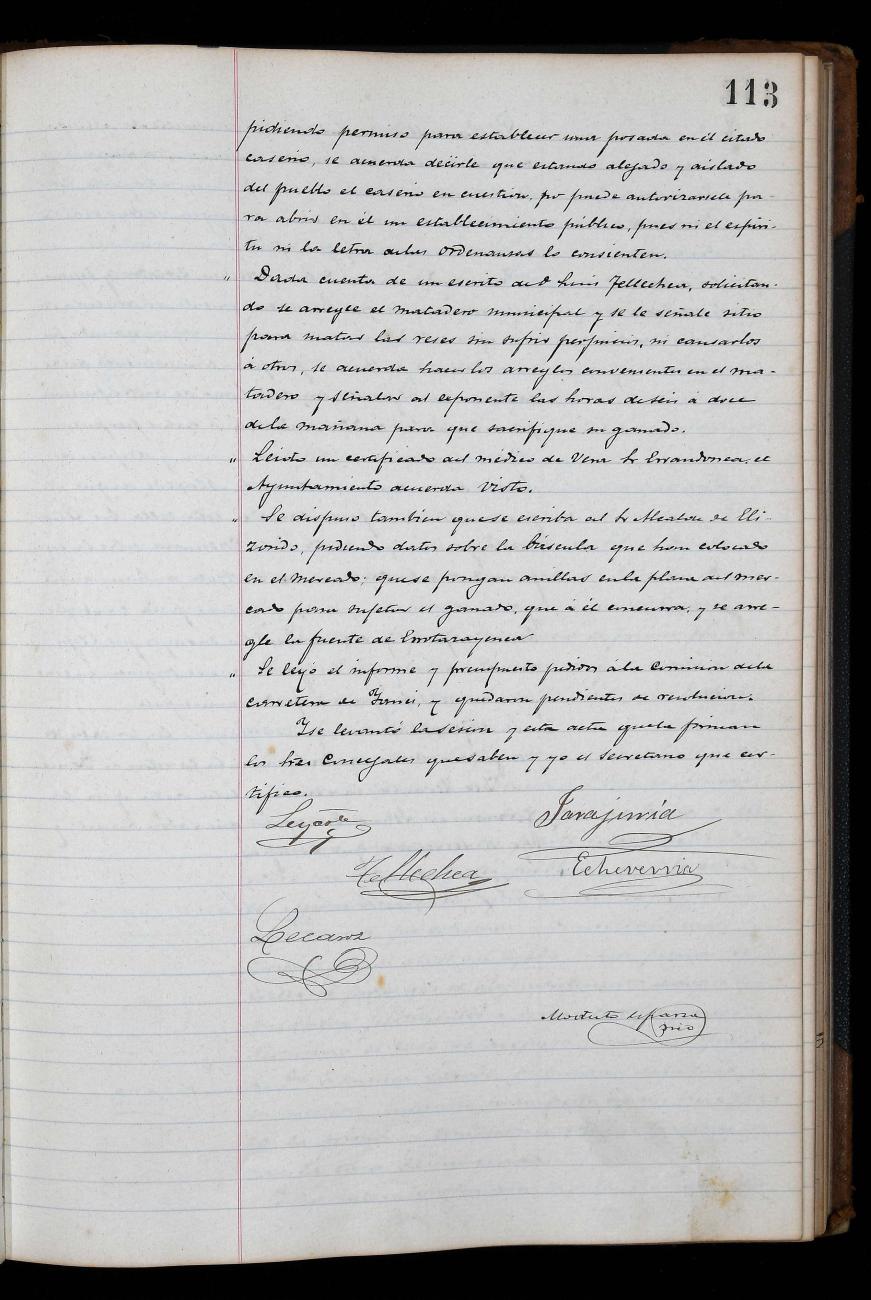 113
pidiendo permiso para establecer una posada en el citado
caserio, se acuerda decirle que estando alejado y aislado
del pueblo el caserio en cuestion, no puede autorizarsele pa-
ra abrir en él un establecimiento público, pues ni el espiri-
tu ni la letra de las ordenanzas lo consienten.
" Dada cuenta de un escrito de D Luis Tellechea, solicitan-
do se arregle el matadero municipal y se le señale sitio
para matar las reses sin sufrir perjuicios, ni causarlos
á otros, se acuerda hacer los arreglos convenientes en el ma-
tadero y señalar al exponente las horas de seis á doce
de la mañana para que sacrifique su ganado.
" Leido un certificado del médico de Vera Sr Errandonea, el
Ayuntamiento acuerda visto.
" Se dispuso tambien que se escriba al Sr Alcalde de Eli-
zondo, pidiendo datos sobre la báscula que han colocado
en el mercado; que se pongan anillas en la plaza del mer-
cado para sujetar el ganado, que á él concurra, y se arre-
gle la fuente de
" Se leyó el informe y presupuesto pedidos á la comision de la
carretera de y quedaron pendientes de resolucion.
Y se levantó la sesion y esta acta que la firman
los tres Concejales que saben y yo el secretario que cer-
tifico.
Tellechea
Echeverria
Lecaroz